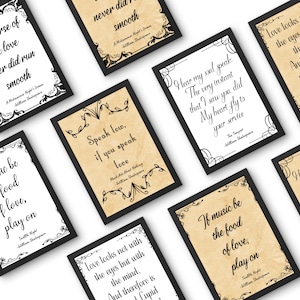 rse of
love
er did run
smooth
never did run
smooth
A Midsummer Night's Dream
William Shakespeare
Hear my soul speak
The very instant
that I saw you did
My heart fly to
your service
The Tempest
William Shakespeare
Love looks
the eyes
the
An
Speak low,
if you speak
love
Much Ado About Nothing
William Shakespeare
ic be
food
love,
play on
Love looks not with
the eyes but with
the mind,
And therefore is
d Cupid
If music be
the food
of love,
play on
Twelfth Night
William Shakespeare